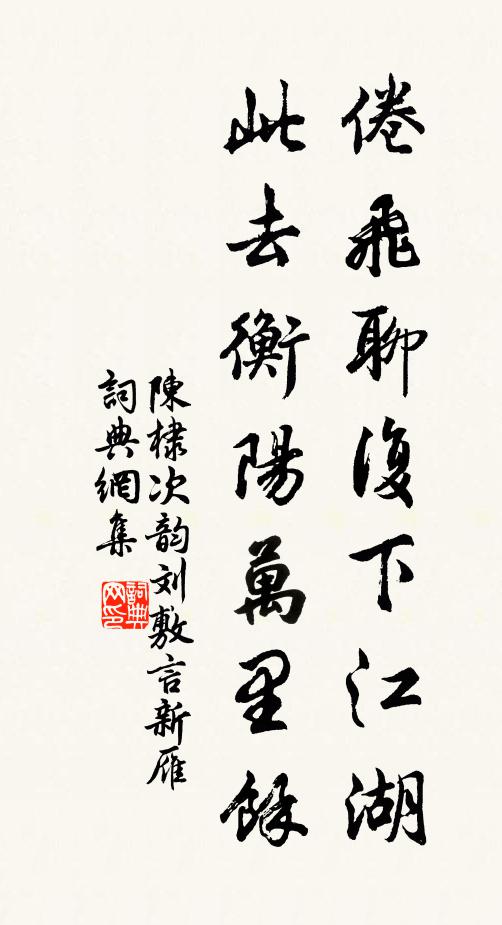 倦飛聊復下江湖
此去衡陽萬里餘
陳棣次韵刘敷言新雁
詞典網集
詞典网印